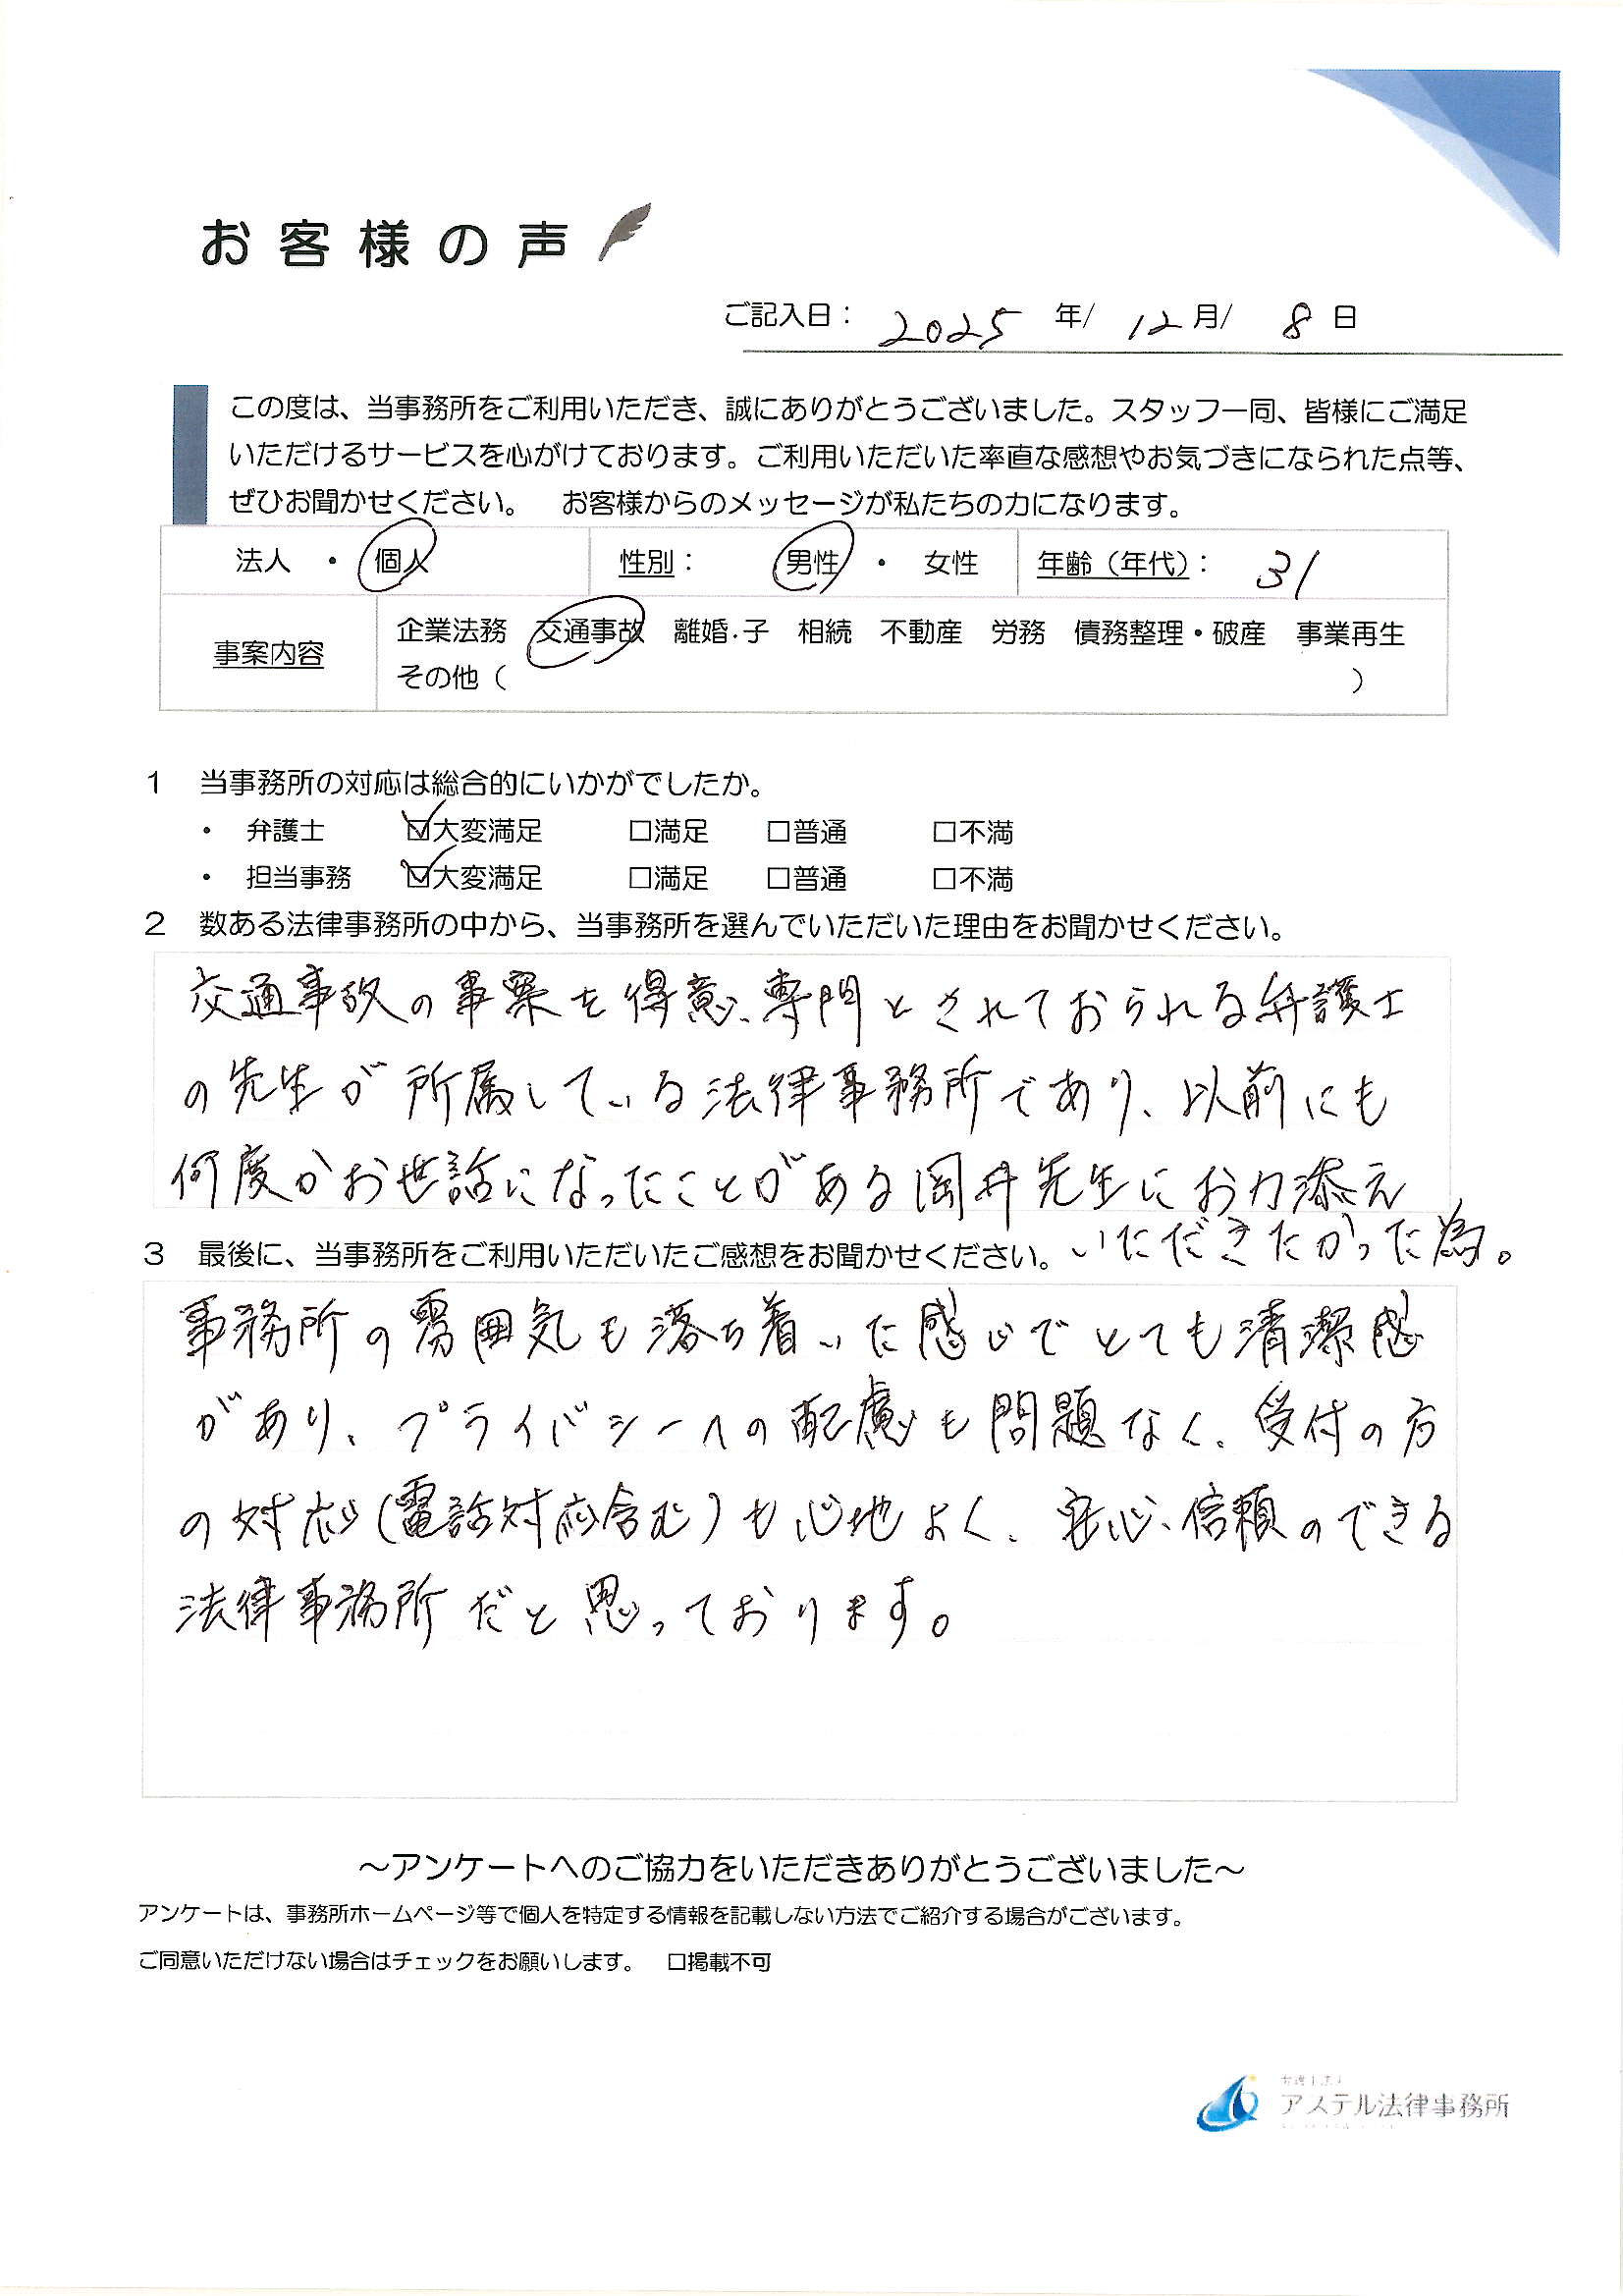 お客様の声
ご記入日： 2025 年/ 12 月/ 8 日
この度は、当事務所をご利用いただき、誠にありがとうございました。スタッフ一同、皆様にご満足
いただけるサービスを心がけております。ご利用いただいた率直な感想やお気づきになられた点等、
ぜひお聞かせください。　お客様からのメッセージが私たちの力になります。
法人 ・ 個人　性別：　男性 ・ 女性　年齢（年代）： 31
事案内容
企業法務　交通事故　離婚・子　相続　不動産　労務　債務整理・破産　事業再生
その他（　　　）
1　当事務所の対応は総合的にいかがでしたか。
・ 弁護士　☑大変満足　□満足　□普通　□不満
・ 担当事務　☑大変満足　□満足　□普通　□不満
2　数ある法律事務所の中から、当事務所を選んでいただいた理由をお聞かせください。
交通事故の事案を得意、専門とされておられる弁護士
の先生が所属している法律事務所であり、以前にも
何度かお世話になったことがある岡井先生にお力添え
いただきたかった為。
3　最後に、当事務所をご利用いただいたご感想をお聞かせください。
事務所の雰囲気も落ち着いた感じでとても清潔感
があり、プライバシーへの配慮も問題なく、受付の方
の対応(電話対応含む)も心地よく、安心、信頼のできる
法律事務所だと思っております。
～アンケートへのご協力をいただきありがとうございました～
アンケートは、事務所ホームページ等で個人を特定する情報を記載しない方法でご紹介する場合がございます。
ご同意いただけない場合はチェックをお願いします。　□掲載不可
弁護士法人
アステル法律事務所